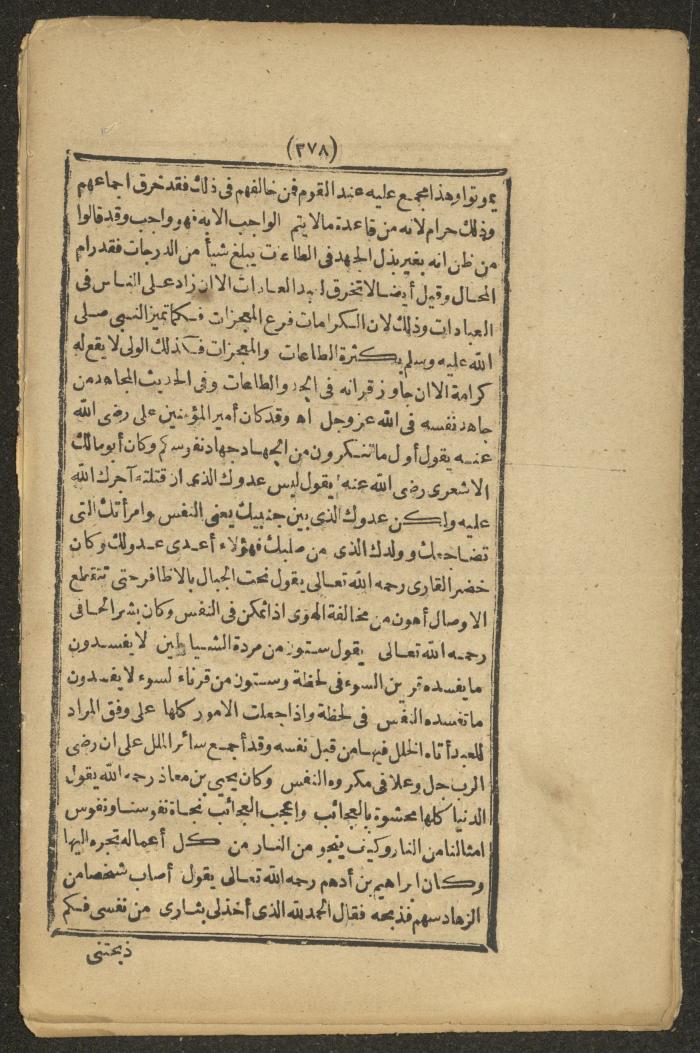 (٣٧٨)
يموتوا وهذا مجمع عليه عند القوم فمن خالفهم فى ذلك فقد خرق اجماعهم
وذلك حرام لانه من قاعدة مالا يتم الواجب الابه فهو واجب وقد قالوا
من ظن انه بغير بذل الجهد فى الطاعات يبلغ شيأ من الدرجات فقد رام
المحال وقيل أيضا لا تخرق لعبد العادات الا ان زاد على الناس فى
العبادات وذلك لان الكرامات فرع المعجزات فكما تميز النبى صلى
الله عليه وسلم بكثرة الطاعات والمعجزات فكذلك الولى لا يقع له
كرامة الا ان جاوز قرانه فى الجد والطاعات وفى الحديث المجاهد من
جاهد نفسه فى الله عز وجل اه وقد كان أمير المؤمنين على رضى الله
عنه يقول أول ما تنكرون من الجهاد جهاد نفوسكم وكان أبو مالك
الاشعرى رضى الله عنه يقول ليس عدوك الذى ان قتلته آجرك الله
عليه ولكن عدوك الذى بين جنبيك يعنى النفس وامرأتك التى
تضاجعك وولدك الذى من صلبك فهؤلاء أعدى عدولك وكان
خضر القارى رحمه الله تعالى يقول نحت الجبال بالاظافر حتى تتقطع
الاوصال أهون من مخالفة الهوى اذا تمكن فى النفس وكان بشر الحافى
رحمه الله تعالى يقول ستون من مردة الشياطين لا يفسدون
ما يفسده قرين السوء فى لحظة وستون من قرناء لسوء لا يفسدون
ما تفسده النفس فى لحظة واذا جعلت الامور كلها على وفق المراد
للعبد أتاه الخلل فيها من قبل نفسه وقد أجمع سائر الملل على ان رضى
الرب جل وعلا فى مكروه النفس وكان يحيى بن معاذ رحمه الله يقول
الدنيا كلها محشوة بالعجائب واعجب العجائب نجاة نفوسنا ونفوس
امثالنا من النار وكيف ينجو من النار من كل أعماله تجره اليها
وكان ابراهيم بن أدهم رحمه الله تعالى يقول أصاب شخصا من
الزهاد سهم فذبحه فقال الحمد لله الذى أخذ لى بثارى من نفسى فكم
ذبحتنى